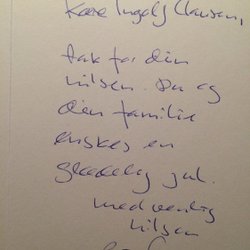 Kære Ingolf Clausen,
tak for din
hilsen. Du og
din familie
ønskes en
glædelig jul.
med venlig
hilsen